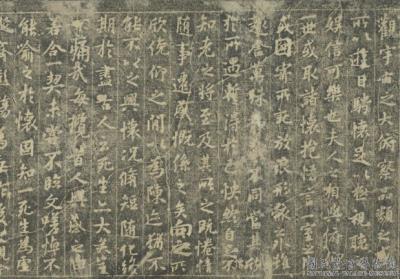 觀宇宙之大俯察品類
所以遊目騁懷足以極視聽
娛信可樂也夫人之相
一世或取諸懷抱悟言
因寄所託放浪形骸之外雖
趣舍萬殊靜躁不同當其
於所遇暫得於己快然自
知老之將至及其所之既惓情
隨事遷感慨係之矣向之所
欣俛仰之間以為陳迹猶不
能不以之興懷況脩短隨化終
期於盡古人云死生亦大矣
不痛哉每攬昔人興感之由
若合一契未嘗不臨文嗟悼不
能喻之於懷固知一死生為虛